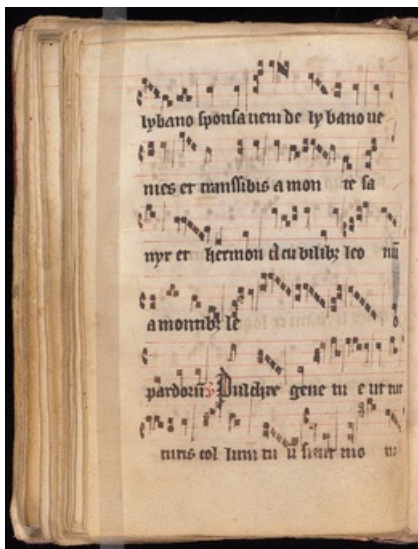 lybano sponsa veni de lybano ve
nies et transsibis a mon te sa
nyr et hermon a cubilibȝ leo nū
a montibȝ le o
pardorū Pulchre gene tu e ut tur
turis col lum tu ū sicut mo ni